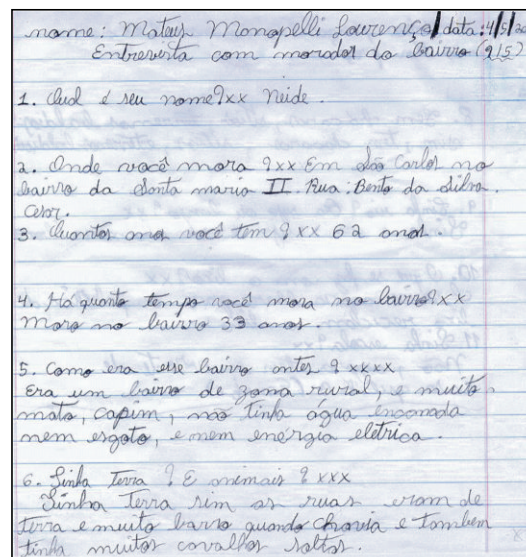 nome: Mateus Monapelli Lourenço data: 4/5/20
Entrevista com morador do bairro (9/5)
1. Qual é seu nome?xx Neide.
2. Onde você mora ?xx Em são Carlos no
bairro da Santa maria II. Rua: Bento da Silva.
Cesar.
3. Quantos anos você tem ?xx 62 anos.
4. Há quanto tempo você mora no bairro?xx
Moro no bairro 33 anos.
5. Como era esse bairro antes ?xxxx
Era um bairro de zona rural, e muito
mato, capim, não tinha agua encanada
nem esgoto, e nem enérgia eletrica.
6. Tinha terra ? E animais ?xxx
Tinha terra sim as ruas eram de
terra e muito barro quando chovia e tambem
tinha muitos cavalos soltos.